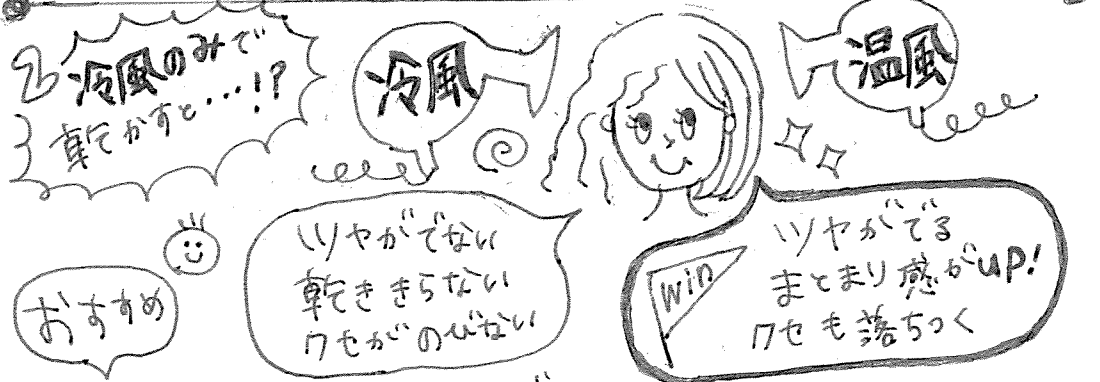 冷風のみで
乾かすと・・・!?
冷風
温風
ツヤがでない
乾ききらない
クセがのびない
win
ツヤがでる
まとまり感がup!
クセも落ちつく
おすすめ